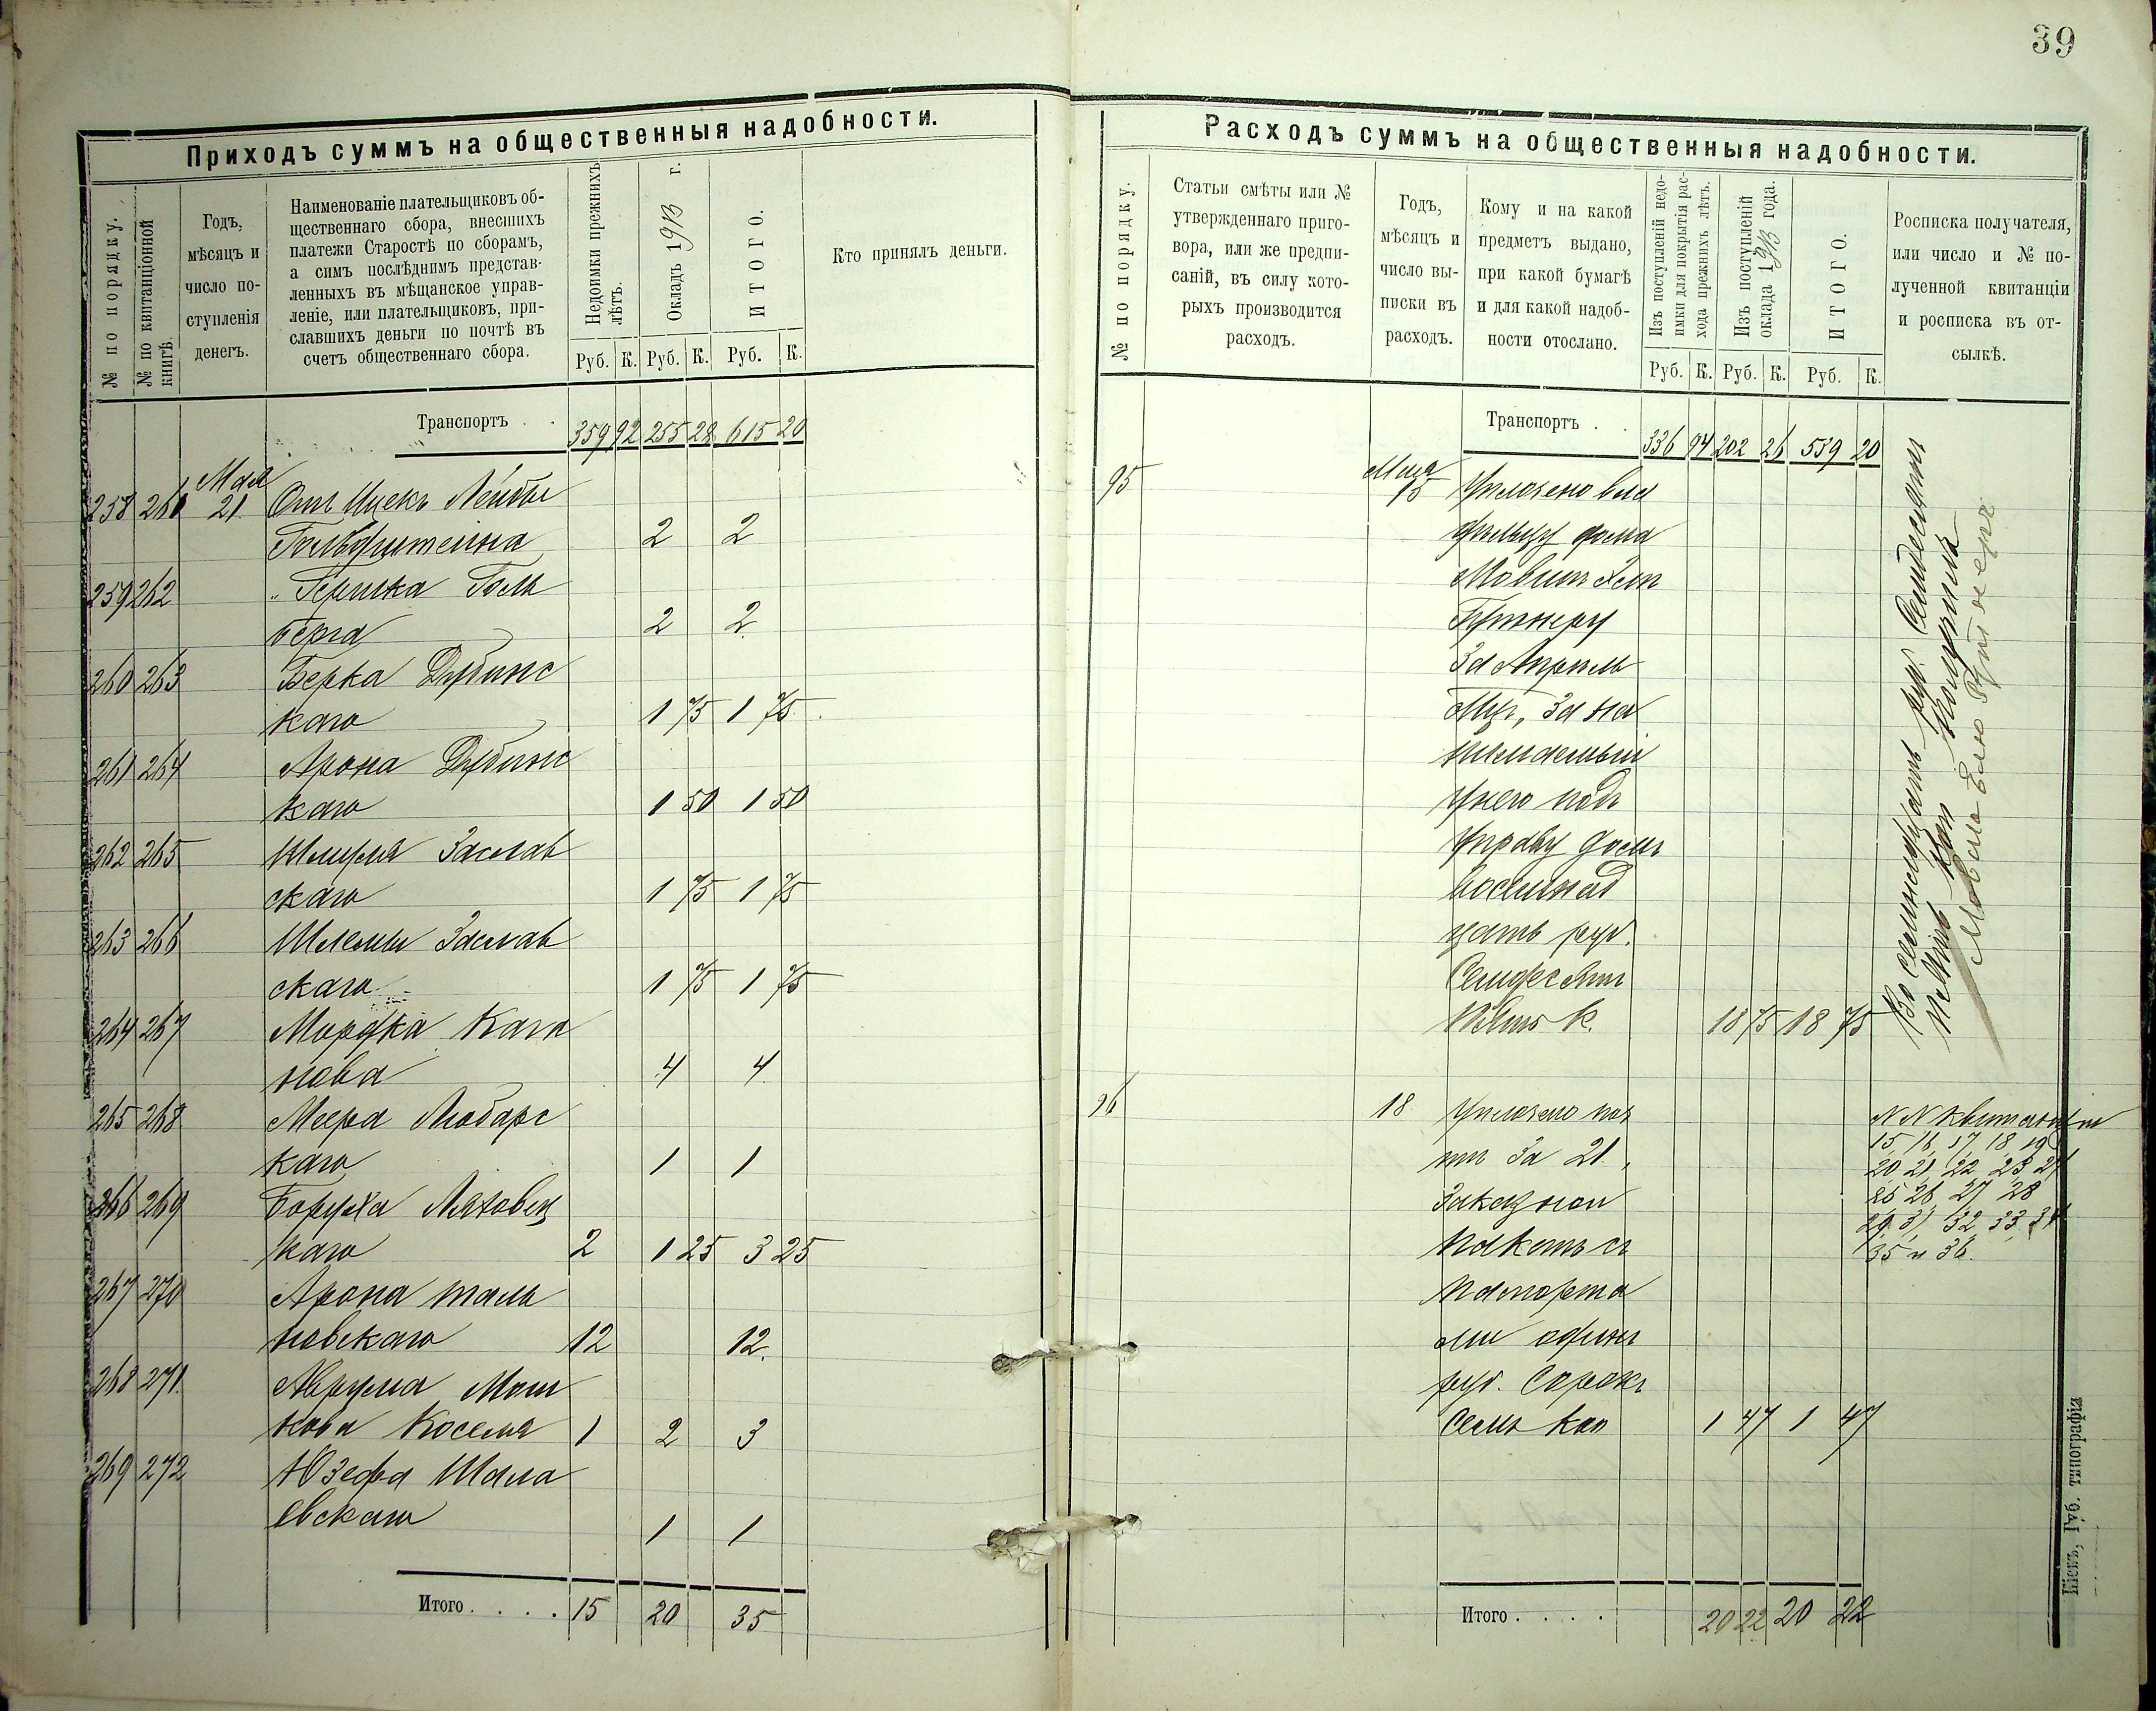 39
Приходъ суммъ на общественныя надобности.
№ по порядку.
№ по квитанціонной
книгѣ.
Годъ,
мѣсяцъ и
число по-
ступленія
денегъ.
Наименованіе плательщиковъ об-
щественнаго сбора, внесшихъ
платежи Старостѣ по сборамъ,
а симъ послѣднимъ представ-
ленныхъ въ мѣщанское управ-
леніе, или плательщиковъ, при-
славшихъ деньги по почтѣ въ
счетъ общественнаго сбора.
Недоимки прежнихъ
лѣтъ.
Окладъ 1913 г.
ИТОГО.
Кто принялъ деньги.
Руб. К. Руб. К. Руб. К.
Транспортъ . . 359 92 255 28 615 20
Мая
258 261 21 Отъ Ицекъ Лейбы
Гольдштейна 2 2
259 262 " Гершка Голь
берга 2 2
260 263 Берка Дубинс
каго 1 75 1 75
261 264 Арона Дубинс
каго 1 50 1 50
262 265 Шмуля Заслав
скаго 1 75 1 75
263 266 Шлемы Заслав
скаго 1 75 1 75
264 267 Мордка Кага
нова 4 4
265 268 Меера Любарс
каго 1 1
266 269 Боруха Ляховец
каго 2 1 25 3 25
267 270 Арона таль
новскаго 12 12
268 271 Аврума Мош
кова Коселя 1 2 3
269 272 Юзефа Шала
евскаго 1 1
Итого . . . . 15 20 35
Расходъ суммъ на общественныя надобности.
№ по порядку.
Статьи смѣты или №
утвержденнаго приго-
вора, или же предпи-
саній, въ силу кото-
рыхъ производится
расходъ.
Годъ,
мѣсяцъ и
число вы-
писки въ
расходъ.
Кому и на какой
предметъ выдано,
при какой бумагѣ
и для какой надоб-
ности отослано.
Изъ поступленій недо-
имки для покрытія рас-
хода прежнихъ лѣтъ.
Изъ поступленій
оклада 1913 года.
ИТОГО.
Росписка получателя,
или число и № по-
лученной квитанціи
и росписка въ от-
сылкѣ.
Руб. К. Руб. К. Руб. К.
Транспортъ . . 336 94 202 26 539 20
95 Мая 15 Уплочено вла
дѣльцу дома

За Апрѣль
Мцъ, за на
нимаемый
у него подъ
управу домъ
восемнад
цать руб.
Семдесятъ
пять к. 18 75 18 75
Восемнадцать руб. Семдесятъ
пять коп получилъ
96 18 Уплочено поч
тѣ за 21
заказной
пакетъ съ
паспорта
ми одинъ
руб. Сорокъ
Семь коп 1 47 1 47
N N квитанціи
15 16 17 18 19
20 21 22 23 24
25 26 27 28
29 31 32 33 34
35 и 36.
Итого . . . . 20 22 20 22
Кіевъ, Губ. типографія